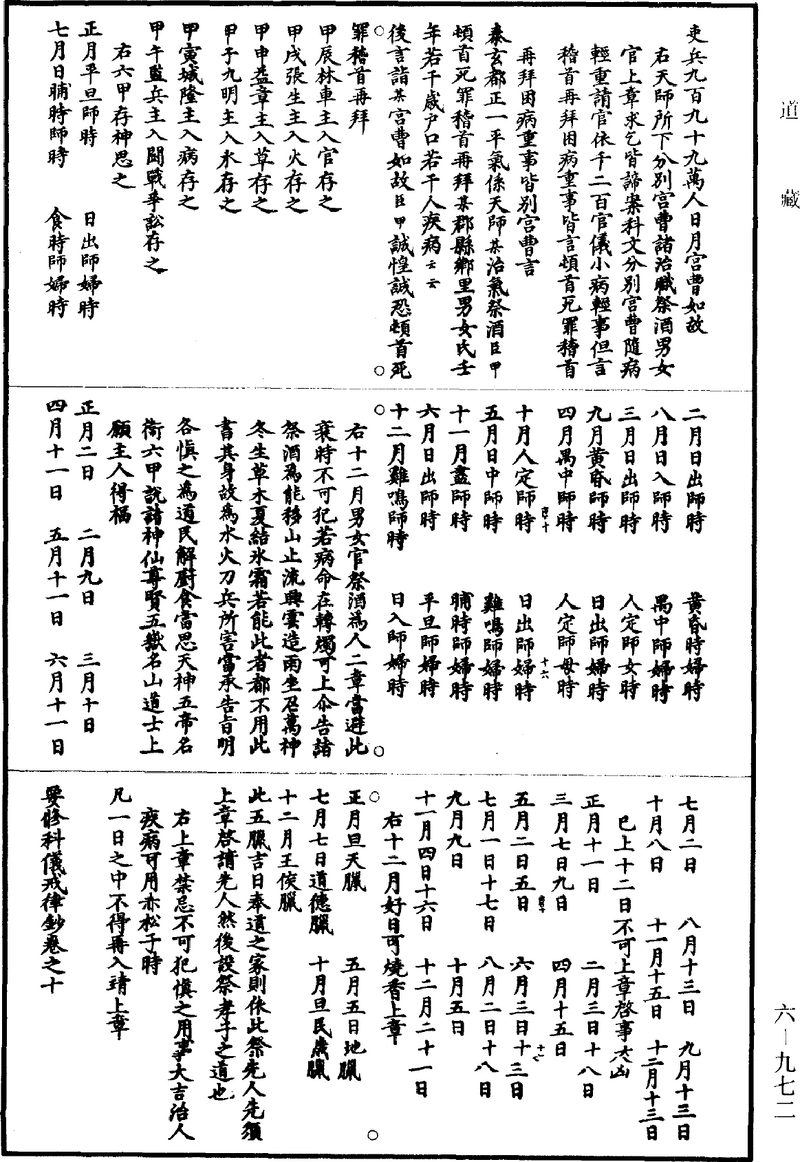 道藏
吏兵九百九十九萬人日月宫曹如故
右天師所下分别宫曹諸治職祭酒男女
官上章求乞皆諦案科文分别宫曹隨病
輕重請官依千二百官儀小病輕事但言
稽首再拜困病重事皆言頓首死罪稽首
再拜困病重事皆别宫曹言
泰玄都正一平氣係天師某治氣祭酒臣甲
頓首死罪稽首再拜某郡縣鄉里男女氏壬
年若干歲户口若干人疾病云云
後言詣某宫曹如故臣甲誠惶誠恐頓首死
罪稽首再拜
甲辰林車主入官存之
甲戌張生主入火存之
甲申益章主入草存之
甲子九明主入水存之
甲寅城隆主入病存之
甲午藍兵主入鬬戰爭訟存之
右六甲存神思之
正月平旦師時 日出師婦時
七月日晡時師時 食時師婦時
二月日出師時 黄昏時婦時
八月日入師時 禺中師婦時
三月日出師時 人定師女時
九月黄昏師時 日出師婦時
四月禺中師時 人定師母時
十月人定師時 日出師婦時
五月日中師時 雞鳴師婦時
十一月晝師時 晡時師婦時
六月日出師時 平旦師婦時
十二月雞鳴師時 日入師婦時
右十二月男女官祭酒為人二章當避此
衰時不可犯若病命在轉燭可上命告諸
祭酒為能移山止流興雲造雨坐召萬神
冬生草木夏結氷霜若能此者都不用此
書其身故為水火刀兵所害當承告旨明
各慎之為道民解厨食當思天神五帝名
銜六甲說諸神仙尊賢五嶽名山道士上
願主人得福
正月二日 二月九日 三月十日
四月十一日 五月十一日 六月十一日
七月二日 八月十三日 九月十三日
十月八日 十一月十五日 十二月十三日
已上十二日不可上章啓事大凶
正月十一日 二月三日十八日
三月七日九日 四月十五日
五月二日五日 六月三日十三日
七月一日十七日 八月二日十八日
九月九日 十月五日
十一月四日十六日 十二月二十一日
右十二月好日可燒香上章
正月旦天臘 五月五日地臘
七月七日道德臘 十月旦民歲臘
十二月王侯臘
此五臘吉日奉道之家則依此祭先人先須
上章啓請先人然後設祭孝子之道也
右上章禁忌不可犯慎之用事大吉治人
疾病可用赤松子時
凡一日之中不得再入靖上章
要修科儀戒律鈔卷之十
六—九七二